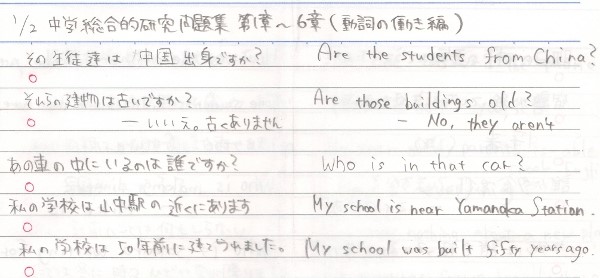 1/2 中学総合的研究問題集 第1章～6章（動詞の働き編）
その生徒達は 中国 出身ですか？ Are the students from China?
それらの建物は古いですか？ Are those buildings old?
ーいいえ。古くありません － No, they aren't
あの車の中にいるのは誰ですか？ Who is in that car?
私の学校は山中駅の近くにあります My school is near Yamanaka Station.
私の学校は50年前に建てられました。 My school was built fifty years ago.